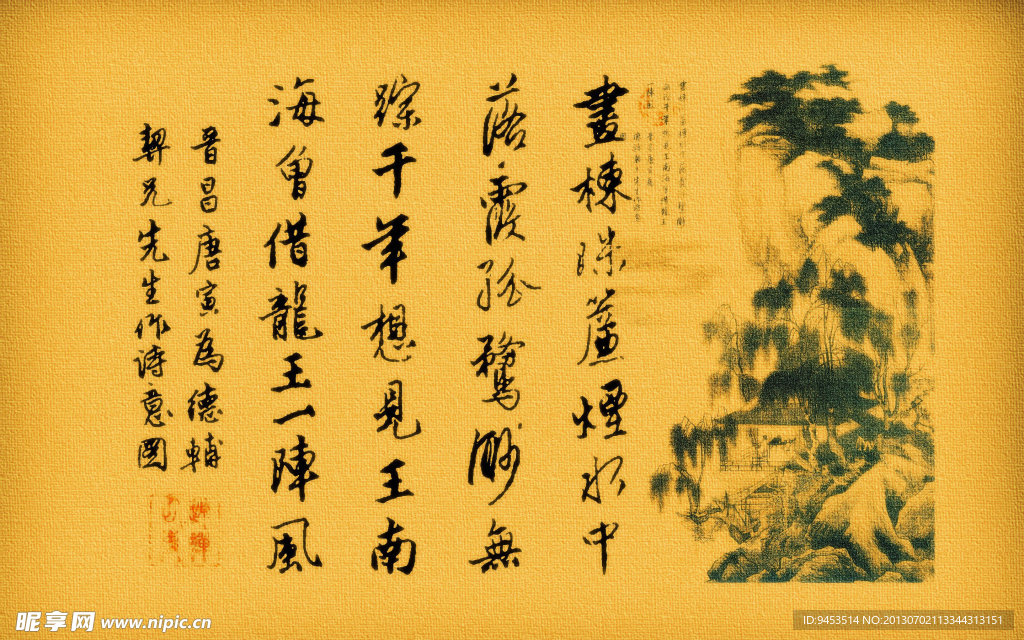 畫棟珠簾煙水中
落霞孤鶩渺無
踪千年想見王南
海曾借龍王一陣風
晉昌唐寅為德輔
契兄先生作詩意圖
昵享网 www.nipic.cn
ID:9453514 NO:20130702113344313151